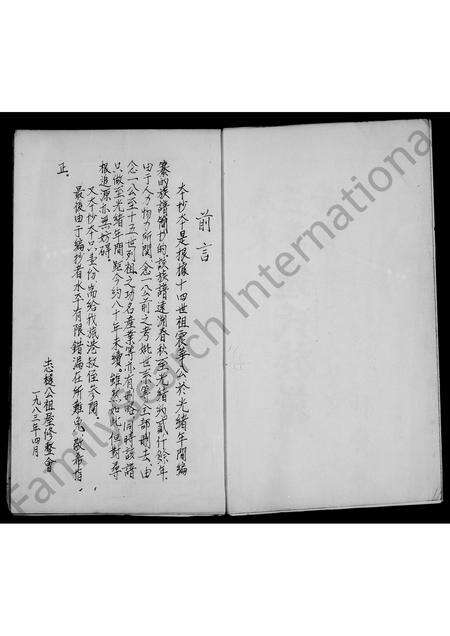 前言
本抄本是根據十四世祖震華公於光緒年間編
纂的族譜簡抄的。該族譜遠溯春秋至光緒約貳仟餘年
由于人力物力所關念一公前之考妣世系等全部刪去由
念一公至十五世列祖之功名產業等亦有 略同時該譜
只做至光緒年間距今約八十年未續。雖然如此但對尋
根追源亦無妨碍。
又本抄本只壹份尚給我旅港叔侄參閱。
最後由于編抄者水平有限錯漏在所難免敬希指
正。
志 公祖 修整會
一九八三年四月
FamilySearch International